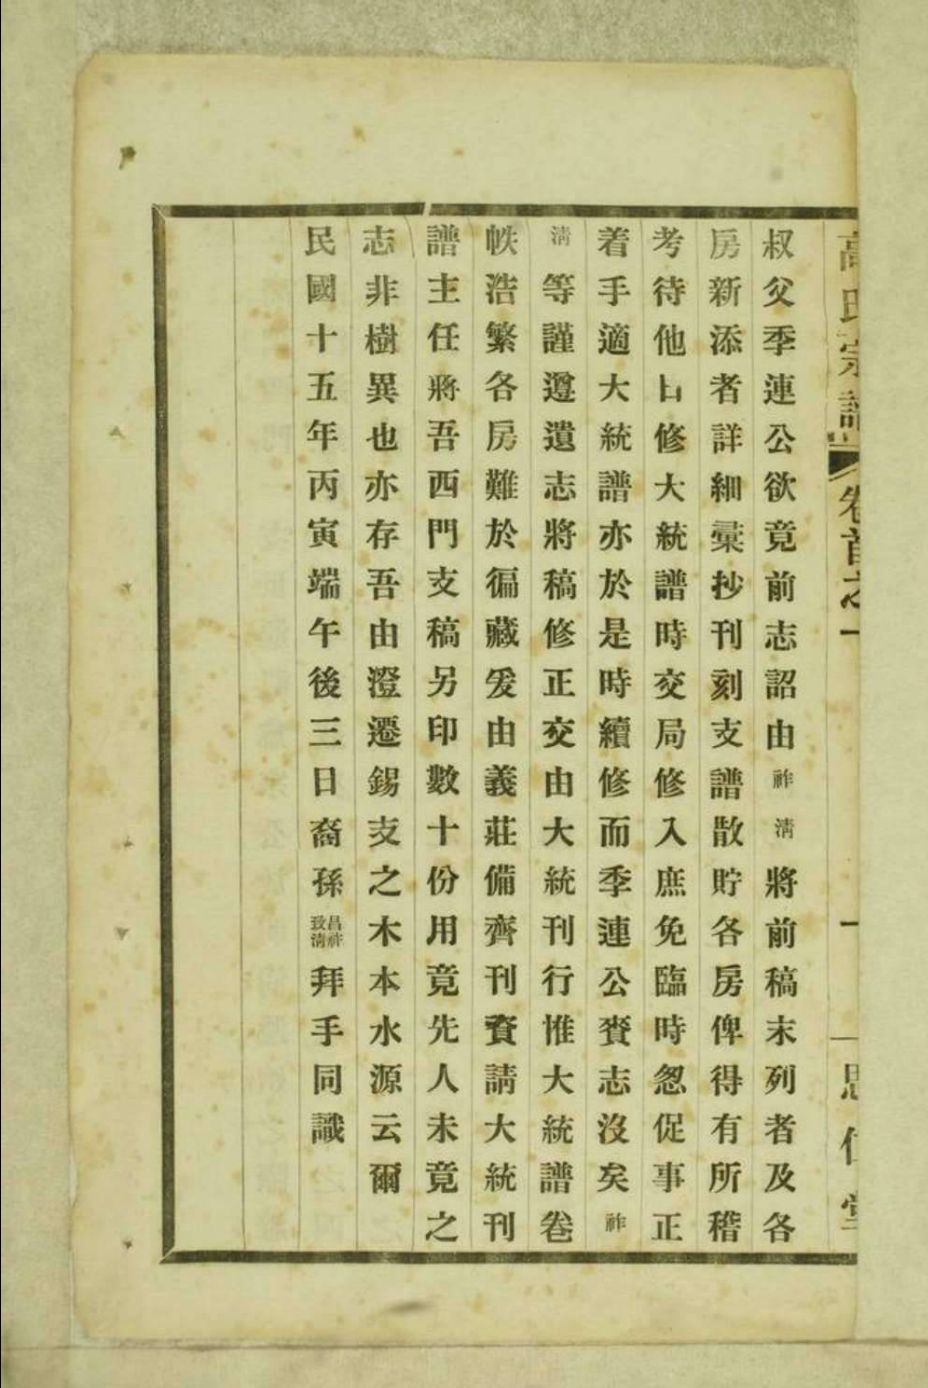 高氏宗譜 卷首之一 一 思仁堂
叔父季連公欲竟前志詔由祚淸將前稿末列者及各
房新添者詳細彙抄刊刻支譜散貯各房俾得有所稽
考待他日修大統譜時交局修入庶免臨時怱促事正
着手適大統譜亦於是時續修而季連公賫志沒矣祚
淸等謹遵遺志將稿修正交由大統刊行惟大統譜卷
帙浩繁各房難於徧藏爰由義莊備齊刊資請大統刊
譜主任將吾西門支稿另印數十份用竟先人未竟之
志非樹異也亦存吾由澄遷錫支之木本水源云爾
民國十五年丙寅端午後三日裔孫昌祚致淸拜手同識